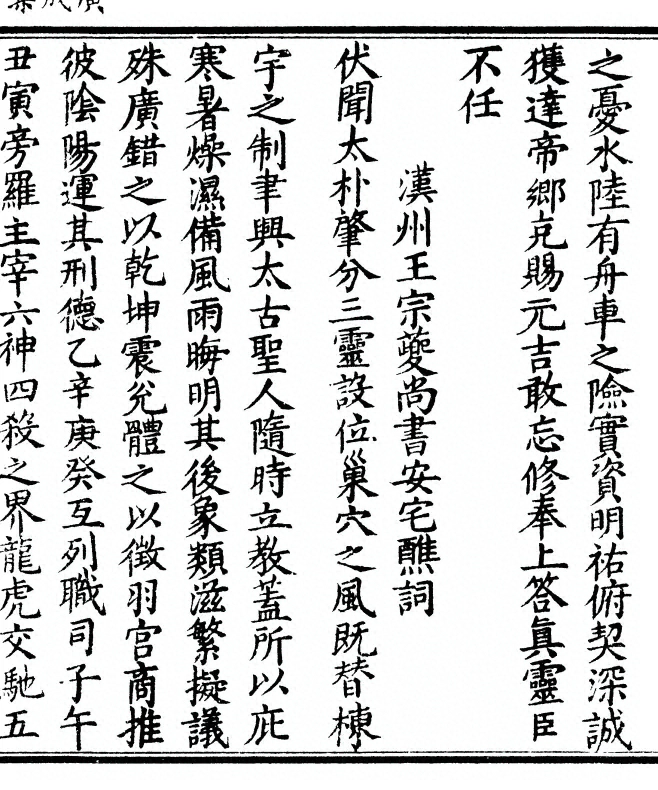 之憂水陸有舟車之險實資明祐俯契深誠
獲達帝鄉克賜元吉敢忘修奉上答眞靈臣
不任
漢州王宗夔尚書安宅醮詞
伏聞太朴肇分三靈設位巢穴之風旣替棟
宇之制聿興太古聖人隨時立教蓋所以庇
寒暑燥濕備風雨晦明其後象類滋繁擬議
殊廣錯之以乾坤震兊體之以徵羽宮商推
彼陰陽運其刑德乙辛庚癸互列職司子午
丑寅旁羅主宰六神四殺之界龍虎交馳五